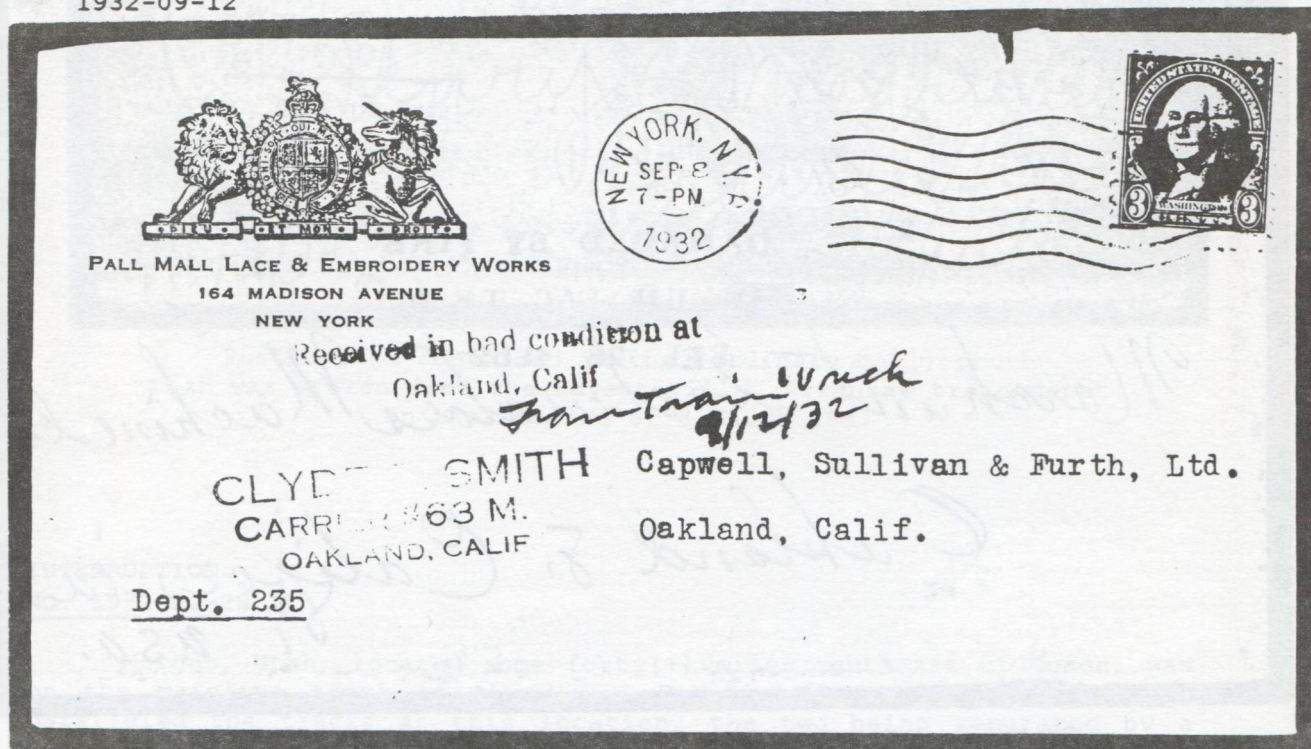 1932-09-12
QUI
DIEU ET MON DROIT
PALL MALL LACE & EMBROIDERY WORKS
164 MADISON AVENUE
NEW YORK
NEW YORK, N.Y.
SEP 8
7-PM
1932
UNITED STATES POSTAGE
3 WASHINGTON 3
Received in bad condition at
Oakland, Calif
From Train Wreck
9/12/32
CLYDE SMITH
CARRIER #63 M.
OAKLAND, CALIF
Capwell, Sullivan & Furth, Ltd.
Oakland, Calif.
Dept. 235